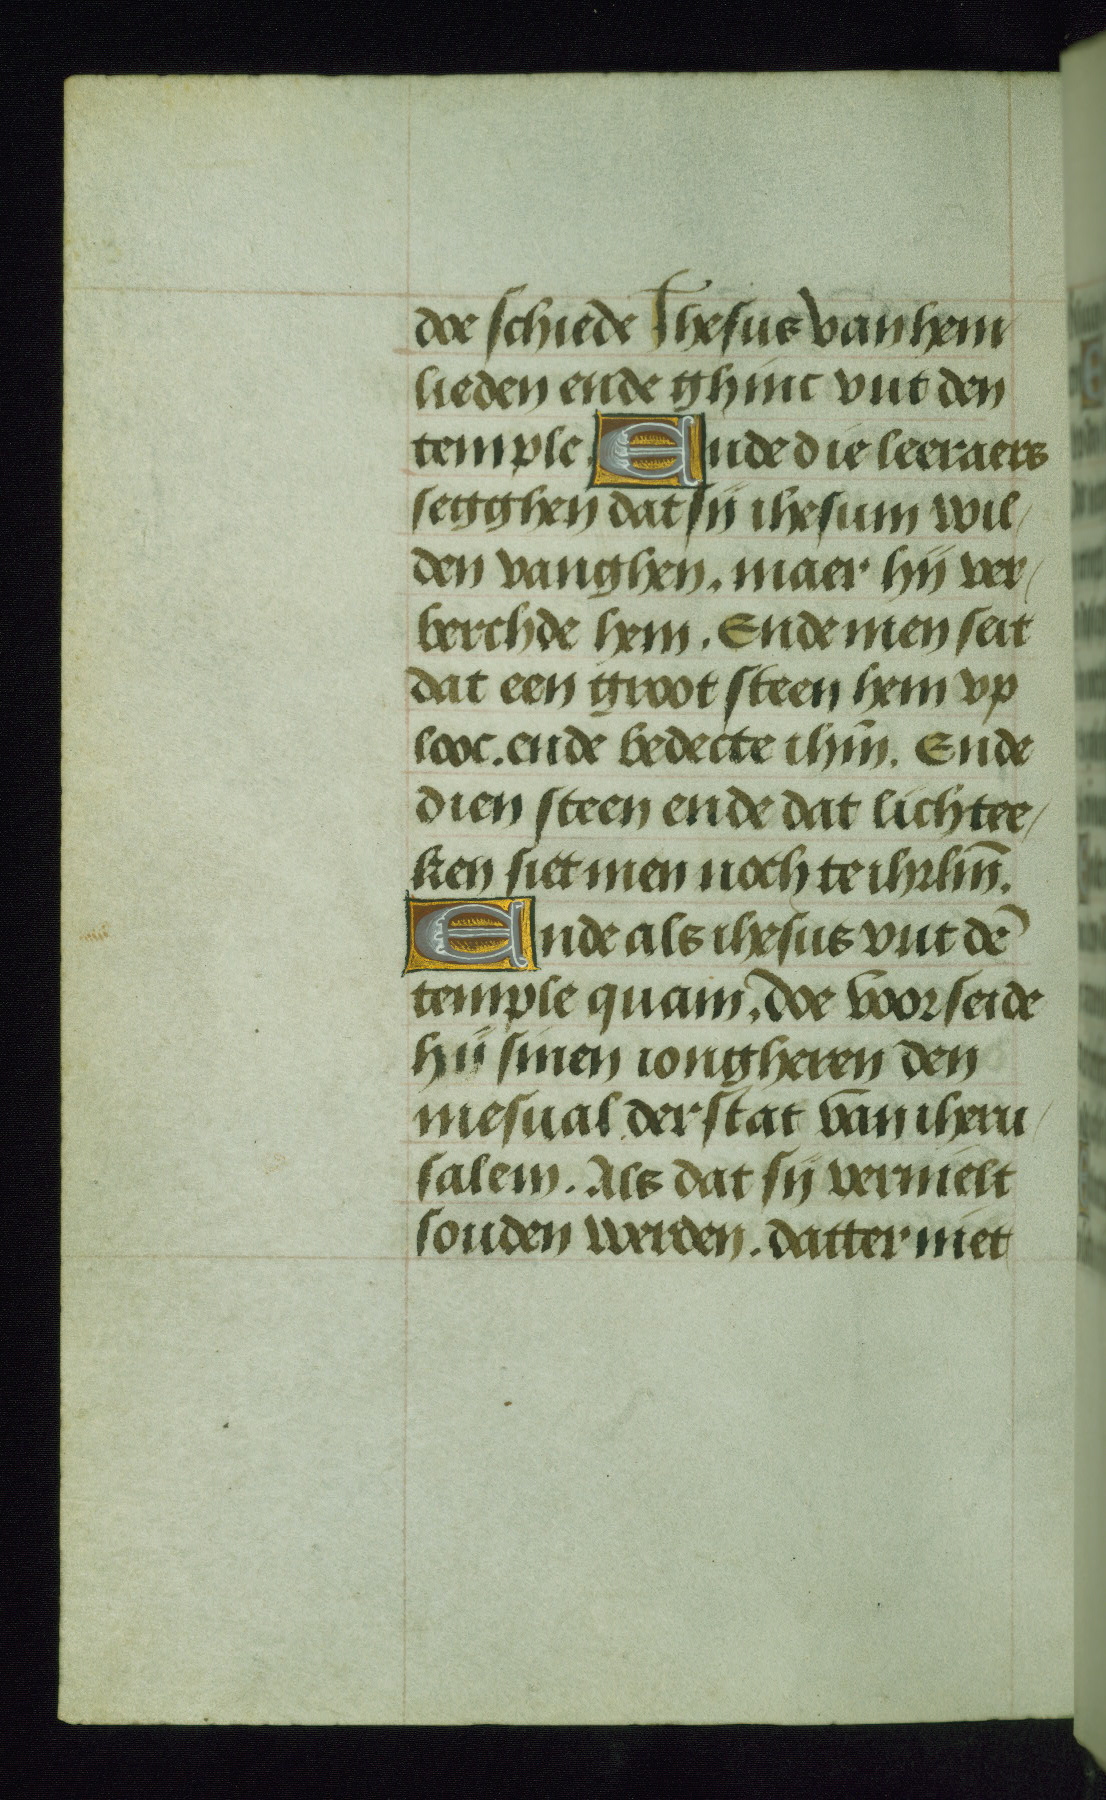 doe schiede Ihesus van hem
lieden ende ghinc vut den
temple. Ende die leeraers
segghen dat sij ihesum wil/
den vanghen. maer hij ver/
berchde hem. Ende men seit
dat een groot steen hem vp
looc. ende bedecte ihm̄. Ende
dien steen ende dat lichtee/
ken siet men noch te ihrlm̄.
Ende als ihesus vut dē
temple quam, doe voor seide
hij sinen iongheren den
mesual der stat van iheru/
salem. Als dat sij vernielt
souden werden. datter niet